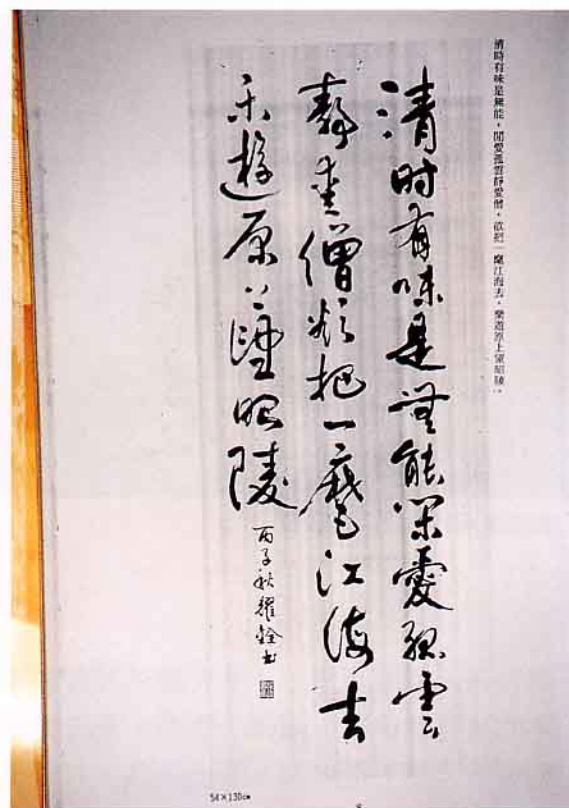 清時有味是無能，閒愛孤雲靜愛僧，欲把一麾江海去，樂遊原上望昭陵。
清时有味是無能閑愛孤雲
靜愛僧欲把一麾江海去
樂遊原上望昭陵
丙子秋耀銓書
54×130cm